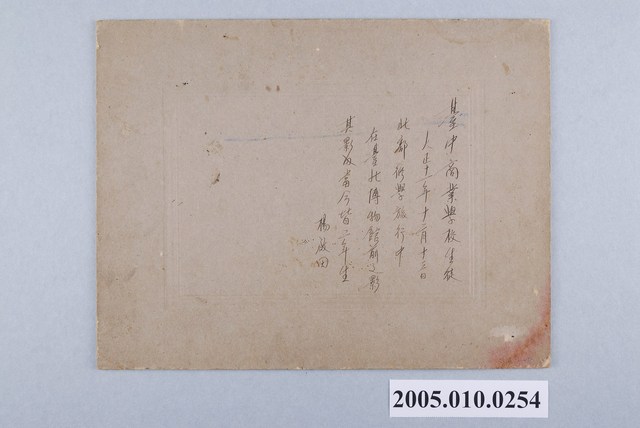 臺中商業學校生徒
大正十一年十二月十三日
北部修學旅行中
在臺北博物館前之影
其影 當今皆二年生
楊 田
2005.010.0254